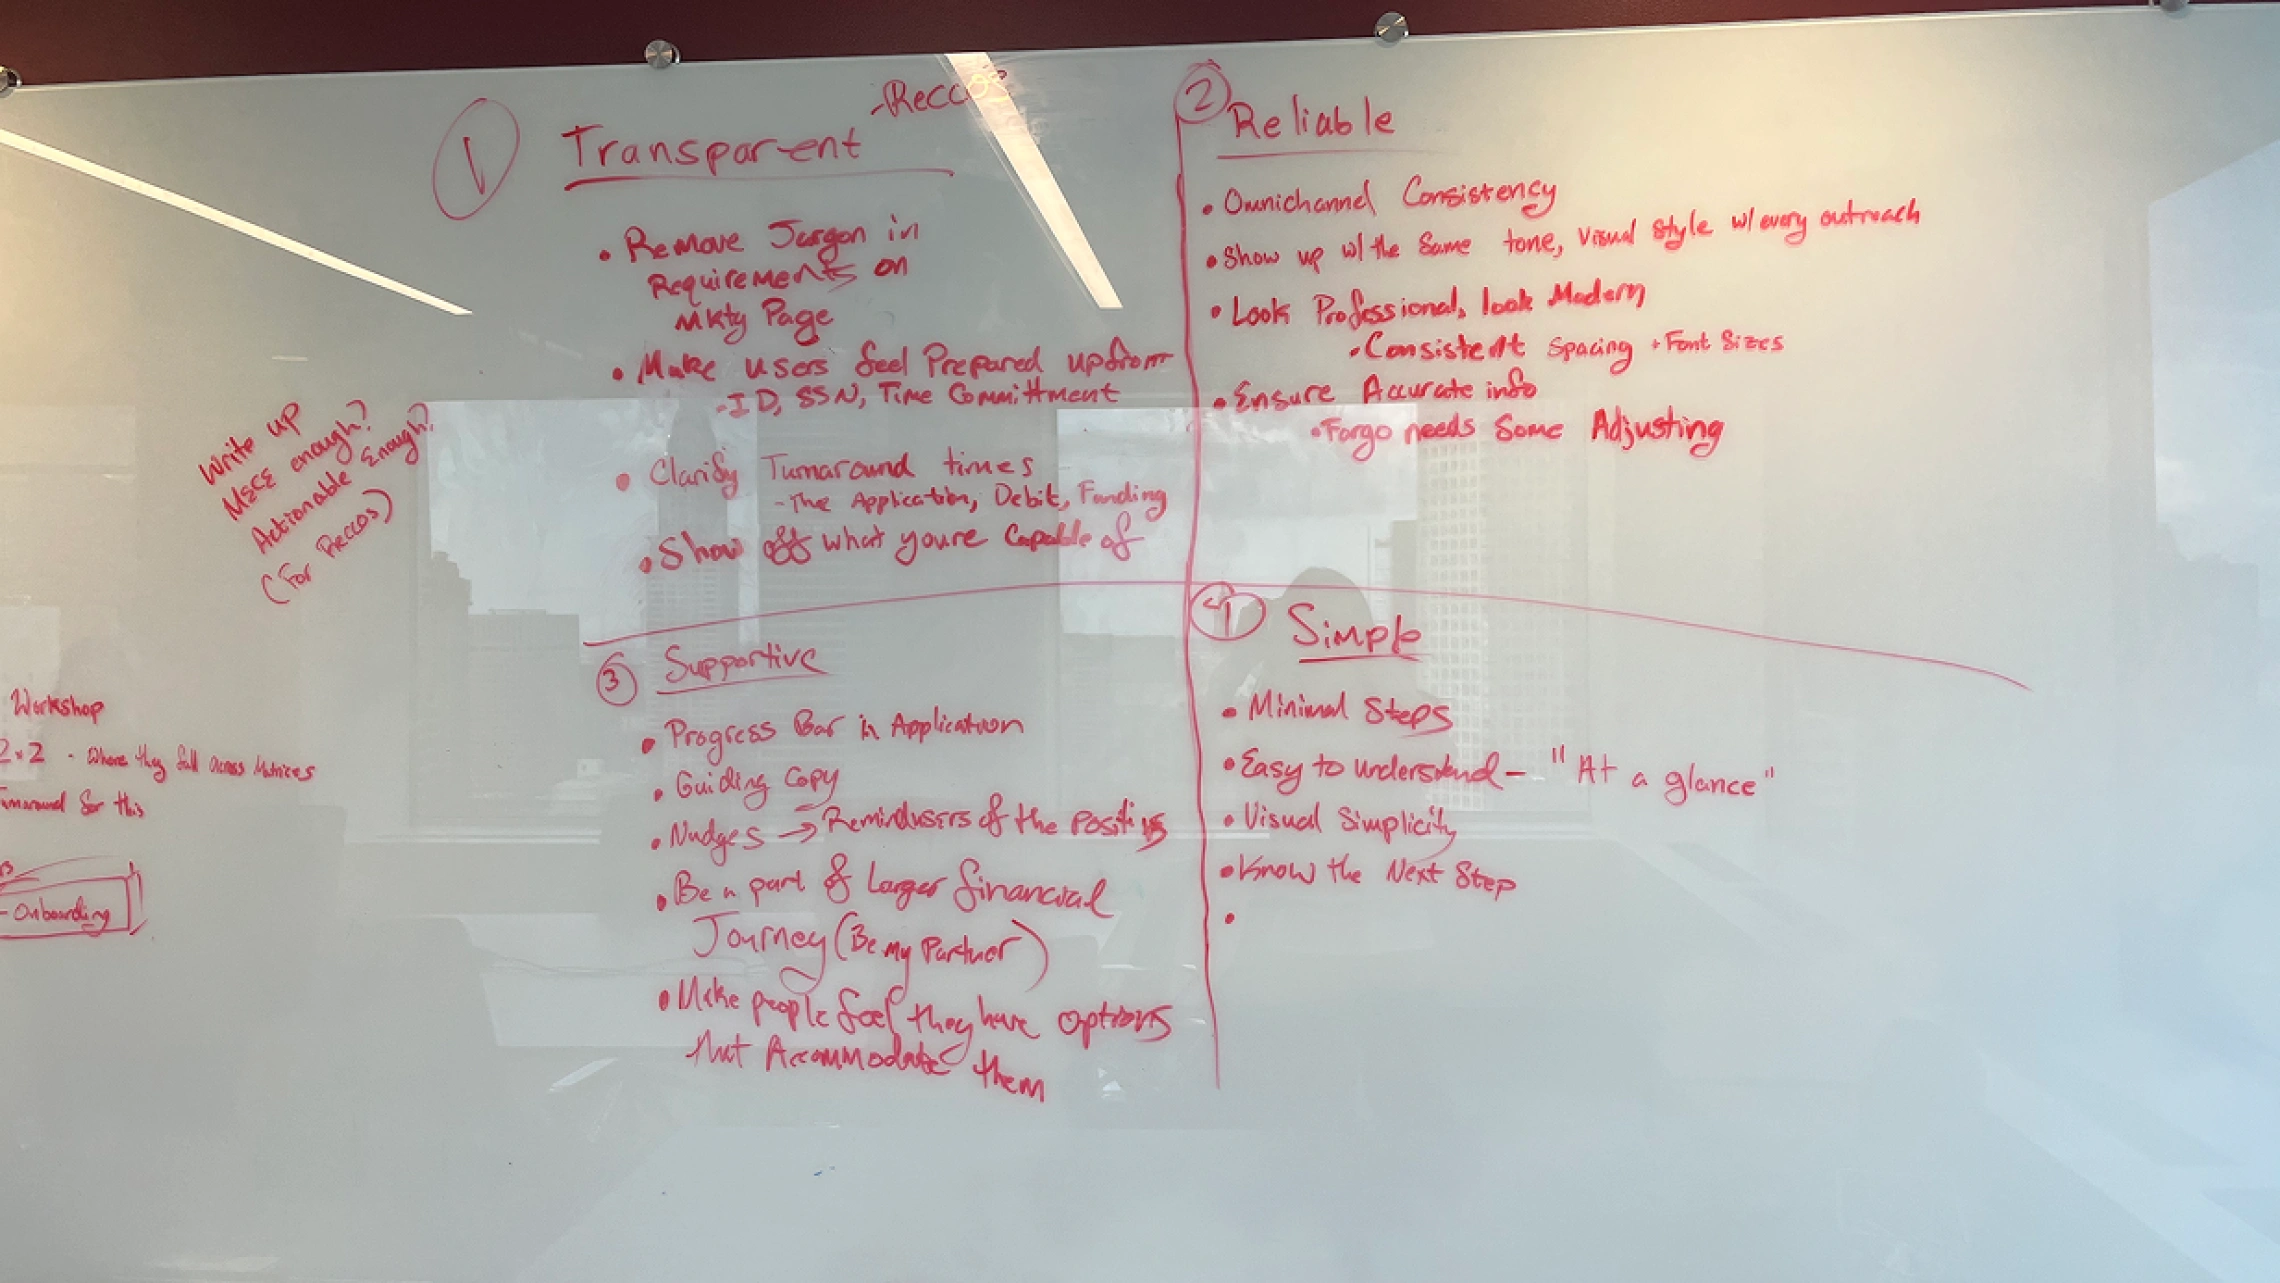 -Reccos
1 Transparent
• Remove Jargon in
Requirements on
Mktg Page
• Make users feel Prepared upfront
-ID, SSN, Time Committment
• Clarify Turnaround times
-The Application, Debit, Funding
• Show off what youre Capable of
2 Reliable
• Omnichannel Consistency
• Show up w/ the Same tone, Visual Style w/ every outreach
• Look Professional, look Modern
• Consistent Spacing + Font Sizes
• Ensure Accurate info
• Fargo needs Some Adjusting
3 Supportive
• Progress Bar in Application
• Guiding Copy
• Nudges → Remind users of the Positives
• Be a part of Larger financial
Journey (Be My Partner)
• Make people feel they have options
that Accommodate them
4 Simple
• Minimal Steps
• Easy to understand - "At a glance"
• Visual Simplicity
• Know the Next Step
•
Write up
MECE enough?
Actionable Enough?
(For Reccos)
Workshop
2x2 - Where they fall Across Matrices
for this
- Onboarding